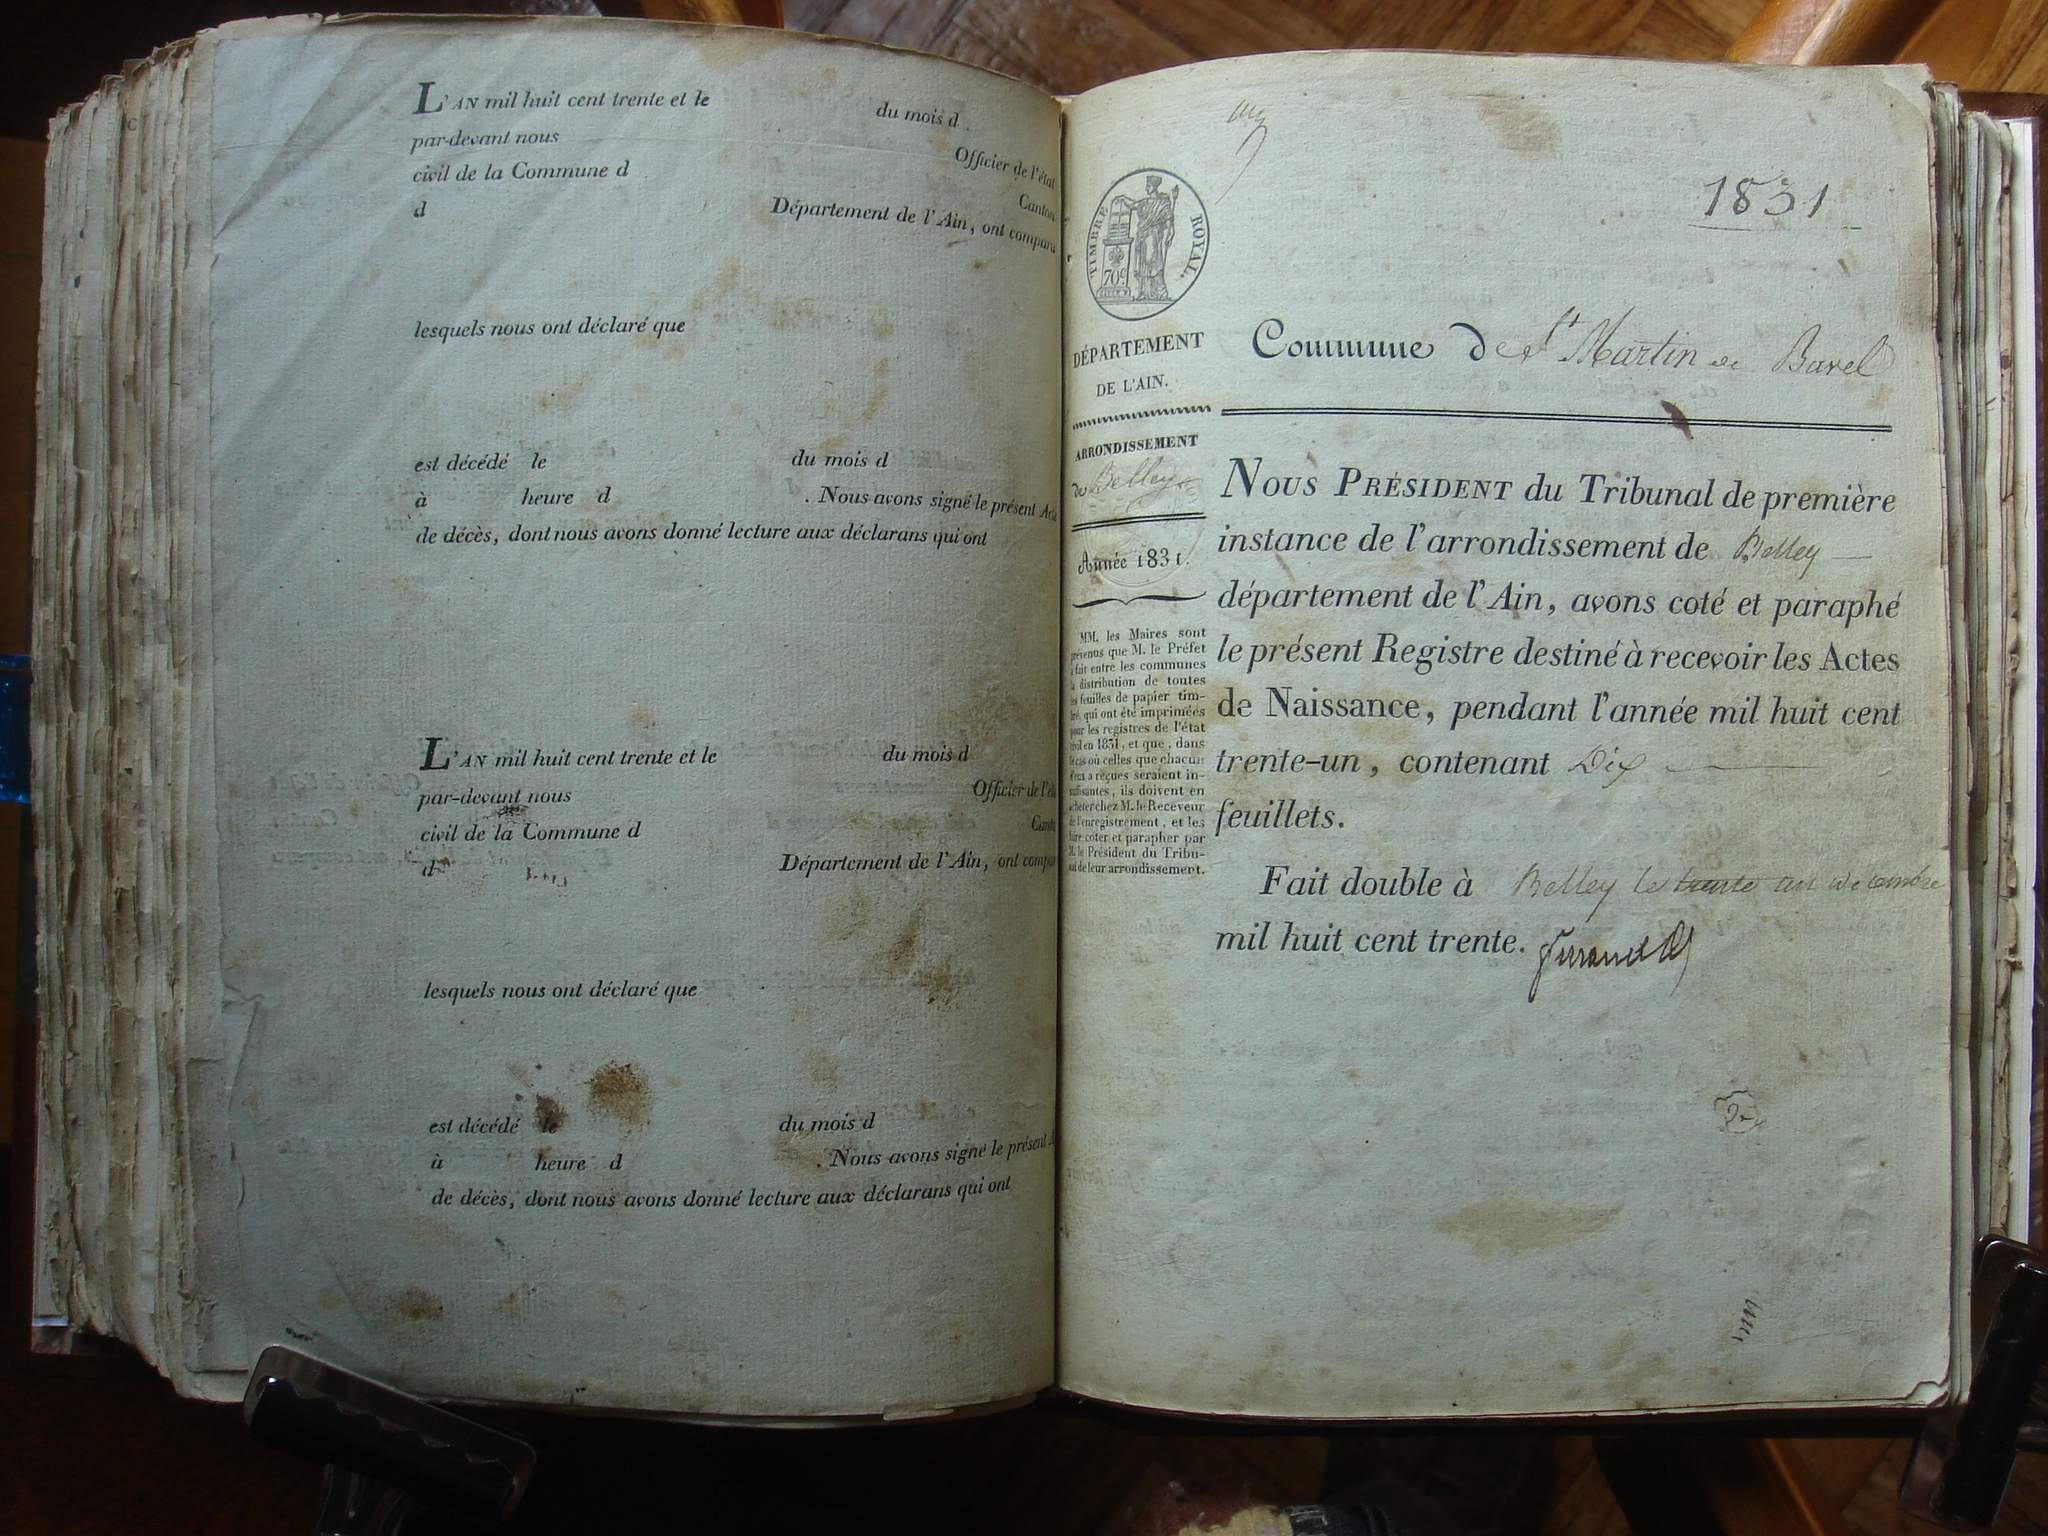 L'AN mil huit cent trente et le du mois d
par-devant nous Officier de l'état
civil de la Commune d Canton
d Département de l'Ain, ont comparu
lesquels nous ont déclaré que
est décédé le du mois d
à heure d . Nous avons signé le présent Acte
de décès, dont nous avons donné lecture aux déclarans qui ont
L'AN mil huit cent trente et le du mois d
par-devant nous Officier de l'ét
civil de la Commune d Canto
d Département de l'Ain, ont compar
lesquels nous ont déclaré que
est décédé le du mois d
à heure d . Nous avons signé le présent A
de décès, dont nous avons donné lecture aux déclarans qui ont
1831
TIMBRE ROYAL.
70c
DÉPARTEMENT
DE L'AIN.
ARRONDISSEMENT
de Belley
Année 1831.
MM. les Maires sont
prévenus que M. le Préfet
a fait entre les communes
la distribution de toutes
les feuilles de papier tim-
bré, qui ont été imprimées
pour les registres de l'état
civil en 1831, et que, dans
le cas où celles que chacun
d'eux a reçues seraient in-
suffisantes, ils doivent en
acheter chez M. le Receveur
de l'enregistrement, et les
faire coter et parapher par
M. le Président du Tribu-
nal de leur arrondissement.
Commune de St Martin de Bavel
NOUS PRÉSIDENT du Tribunal de première
instance de l'arrondissement de Belley
département de l'Ain, avons coté et paraphé
le présent Registre destiné à recevoir les Actes
de Naissance, pendant l'année mil huit cent
trente-un, contenant Dix
feuillets.
Fait double à Belley le trente un décembre
mil huit cent trente.